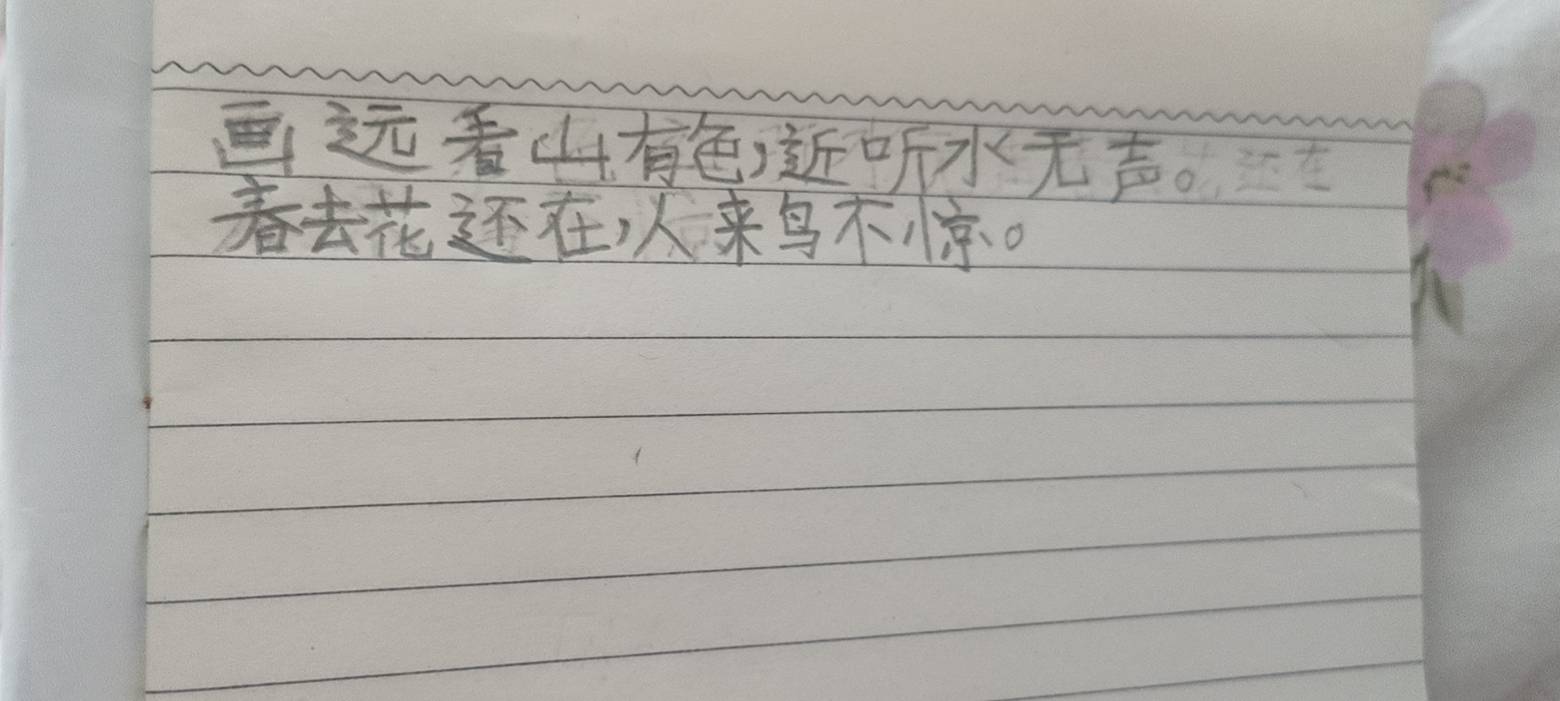 画远看山有色，近听水无声。
春去花还在，人来鸟不惊。